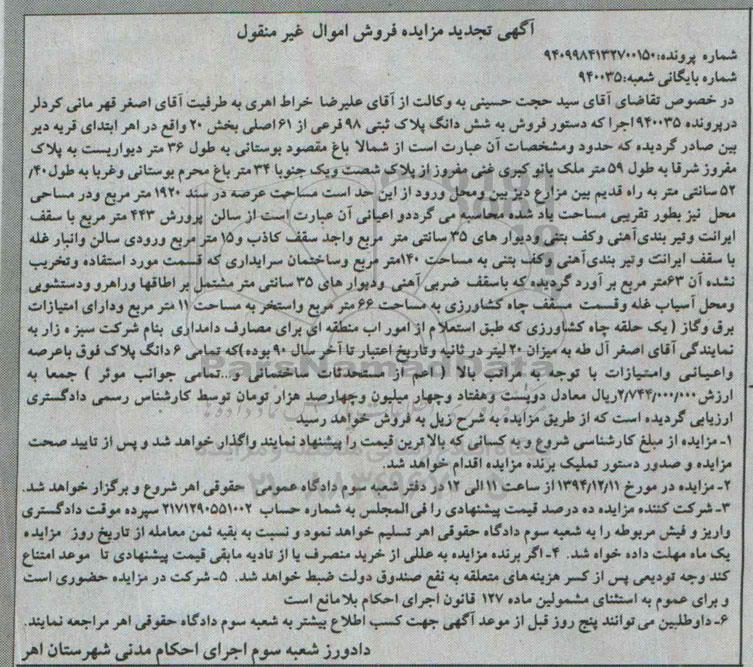 آگهی تجدید مزایده فروش اموال غیر منقول
شماره پرونده:۹۴۰۹۹۸۴۱۳۲۷۰۰۱۵۰
شماره بایگانی شعبه:۹۴۰۰۳۵
در خصوص تقاضای آقای سید حجت حسینی به وکالت از آقای علیرضا خراط اهری به طرفیت آقای اصغر قهر مانی کردلر
درپرونده ۹۴۰۰۳۵اجرا که دستور فروش به شش دانگ پلاک ثبتی ۹۸ فرعی از ۶۱اصلی بخش ۲۰ واقع در اهر ابتدای قریه دیر
بین صادر گردیده که حدود ومشخصات آن عبارت است از شمالا باغ مقصود بوستانی به طول ۳۶ متر دیواریست به پلاک
مفروز شرقا به طول ۵۹ متر ملک بانو کبری غنی مفروز از پلاک شصت ویک جنوبا ۳۴ متر باغ محرم بوستانی وغربا به طول۴۰/
۵۲ سانتی متر به راه قدیم بین مزارع دیز بین ومحل ورود از این حد است مساحت عرصه در سند ۱۹۲۰ متر مربع ودر مساحی
محل نیز بطور تقریبی مساحت یاد شده محاسبه می گرددو اعیانی آن عبارت است از سالن پرورش ۴۴۳ متر مربع با سقف
ایرانت وتیر بندی‌آهنی وکف بتنی ودیوار های ۳۵ سانتی متر مربع واجد سقف کاذب و۱۵ متر مربع ورودی سالن وانبار غله
با سقف ایرانت وتیر بندی‌آهنی وکف بتنی به مساحت ۱۴۰متر مربع وساختمان سرایداری که قسمت مورد استفاده وتخریب
نشده آن ۶۳متر مربع بر آورد گردیده که باسقف ضربی آهنی ودیوار های ۳۵ سانتی متر مشتمل بر اطاقها وراهرو ودستشویی
ومحل آسیاب غله وقسمت مسقف چاه کشاورزی به مساحت ۶۶ متر مربع واستخر به مساحت ۱۱ متر مربع ودارای امتیازات
برق وگاز ( یک حلقه چاه کشاورزی که طبق استعلام از امور اب منطقه ای برای مصارف دامداری بنام شرکت سبزه زار به
نمایندگی آقای اصغر آل طه به میزان ۲۰ لیتر در ثانیه وتاریخ اعتبار تا آخر سال ۹۰ بوده)که تمامی ۶ دانگ پلاک فوق باعرصه
واعیانی وامتیازات با توجه به مراتب بالا ( اعم از مستحدثات ساختمانی و...تمامی جوانب موثر ) جمعا به
ارزش ۲/۷۴۴/۰۰۰/۰۰۰ریال معادل دویست وهفتاد وچهار میلیون وچهارصد هزار تومان توسط کارشناس رسمی دادگستری
ارزیابی گردیده است که از طریق مزایده به شرح زیل به فروش خواهد رسید
۱- مزایده از مبلغ کارشناسی شروع و به کسانی که بالا ترین قیمت را پیشنهاد نمایند واگذار خواهد شد و پس از تایید صحت
مزایده و صدور دستور تملیک برنده مزایده اقدام خواهد شد.
۲- مزایده در مورخ ۱۳۹۴/۱۲/۱۱ از ساعت ۱۱ الی ۱۲ در دفتر شعبه سوم دادگاه عمومی حقوقی اهر شروع و برگزار خواهد شد.
۳- شرکت کننده مزایده ده درصد قیمت پیشنهادی را فی‌المجلس به شماره حساب ۲۱۷۱۲۹۰۵۵۱۰۰۲ سپرده موقت دادگستری
واریز و فیش مربوطه را به شعبه سوم دادگاه حقوقی اهر تسلیم خواهد نمود و نسبت به بقیه ثمن معامله از تاریخ روز مزایده
یک ماه مهلت داده خواه شد. ۴- اگر برنده مزایده به عللی از خرید منصرف یا از تادیه مابقی قیمت پیشنهادی تا موعد امتناع
کند وجه تودیعی پس از کسر هزینه های متعلقه به نفع صندوق دولت ضبط خواهد شد. ۵- شرکت در مزایده حضوری است
و برای عموم به استثنای مشمولین ماده ۱۲۷ قانون اجرای احکام بلامانع است
۶- داوطلبین می توانند پنج روز قبل از موعد آگهی جهت کسب اطلاع بیشتر به شعبه سوم دادگاه حقوقی اهر مراجعه نمایند.
دادورز شعبه سوم اجرای احکام مدنی شهرستان اهر